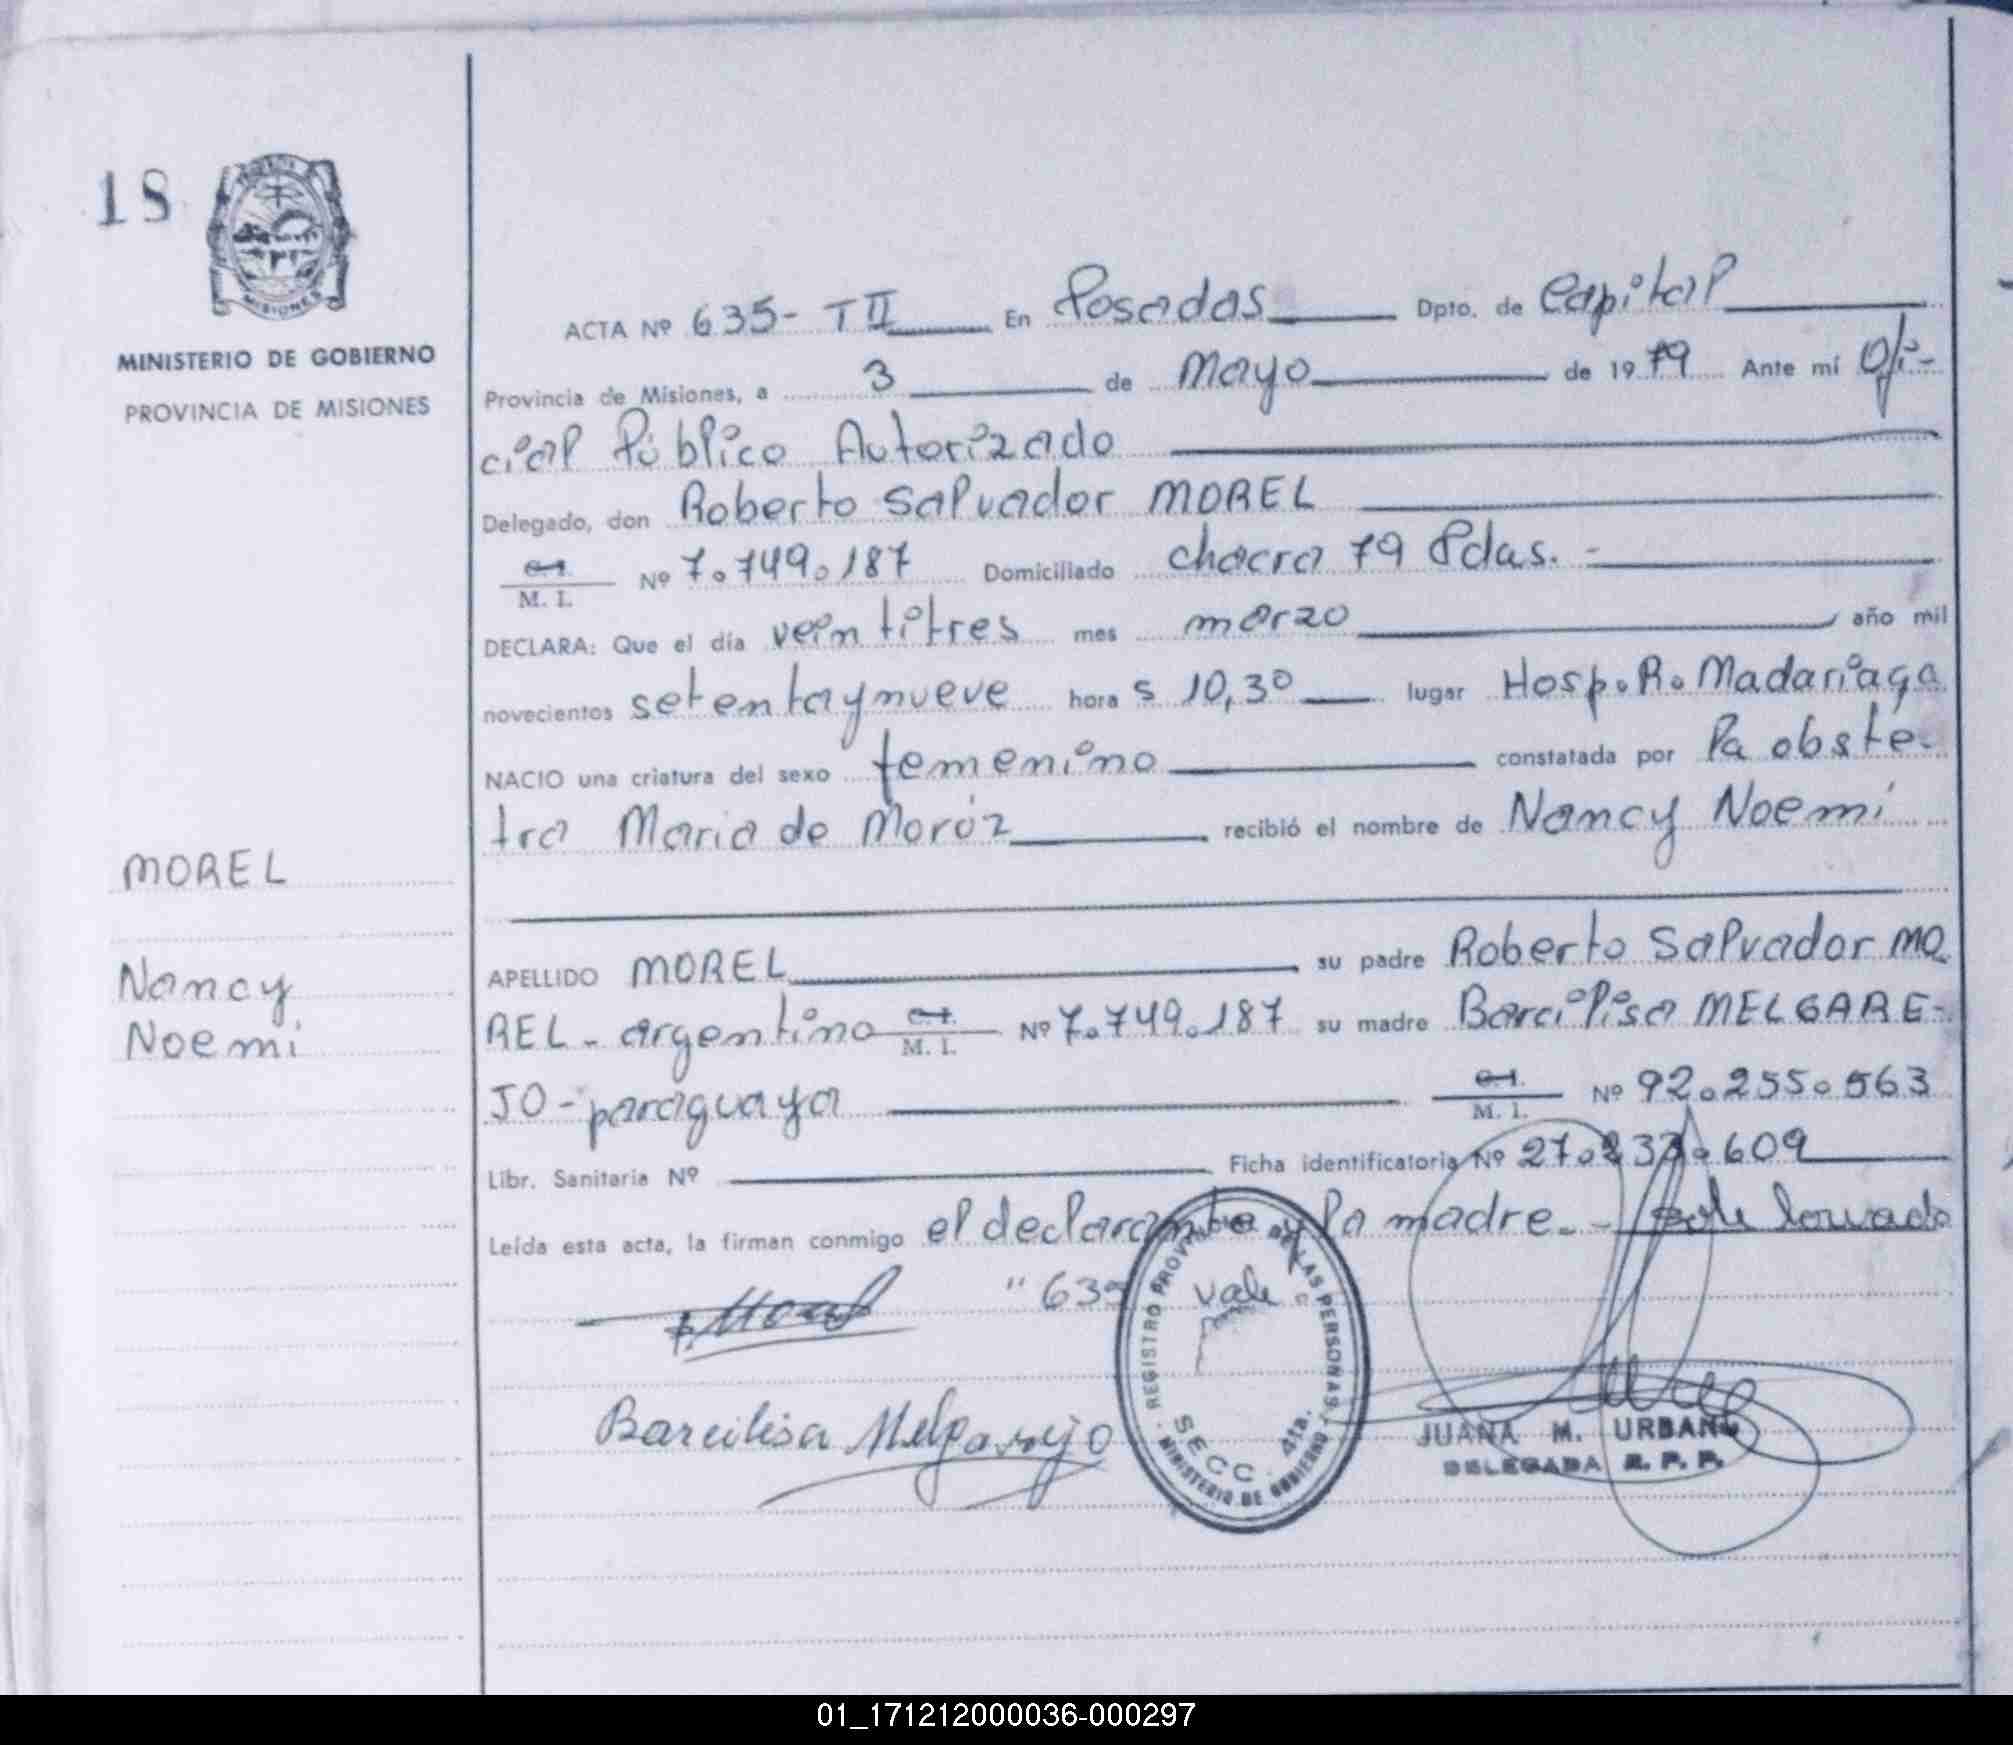 18
MINISTERIO DE GOBIERNO
PROVINCIA DE MISIONES
ACTA Nº 635- TII En Posadas Dpto. de Capital
Provincia de Misiones, a 3 de Mayo de 1979 Ante mí Ofi-
cial Público Autorizado
Delegado, don Roberto Salvador MOREL
C.I.
M. I. Nº 7.749.187 Domiciliado chacra 79 Pdas.-
DECLARA: Que el día veintitres mes marzo año mil
novecientos setentaynueve hora s 10,30 lugar Hosp. R. Madariaga
NACIO una criatura del sexo femenino constatada por la obste-
tra Maria de Moróz recibió el nombre de Nancy Noemi
MOREL
Nancy
Noemi
APELLIDO MOREL su padre Roberto Salvador MO
REL - argentino C.I. M. I. Nº 7.749.187 su madre Barcilisa MELGARE-
JO - paraguaya C.I. M. I. Nº 92.255.563
Libr. Sanitaria Nº Ficha identificatoria Nº 27.233.609
Leída esta acta, la firman conmigo el declarante y la madre.-
"639 vale
Barcilisa Melgarejo
REGISTRO PROVINCIAL DE LAS PERSONAS
SECC. 4ta.
MINISTERIO DE GOBIERNO
JUANA M. URBANO
DELEGADA R. P. P.
01_171212000036-000297